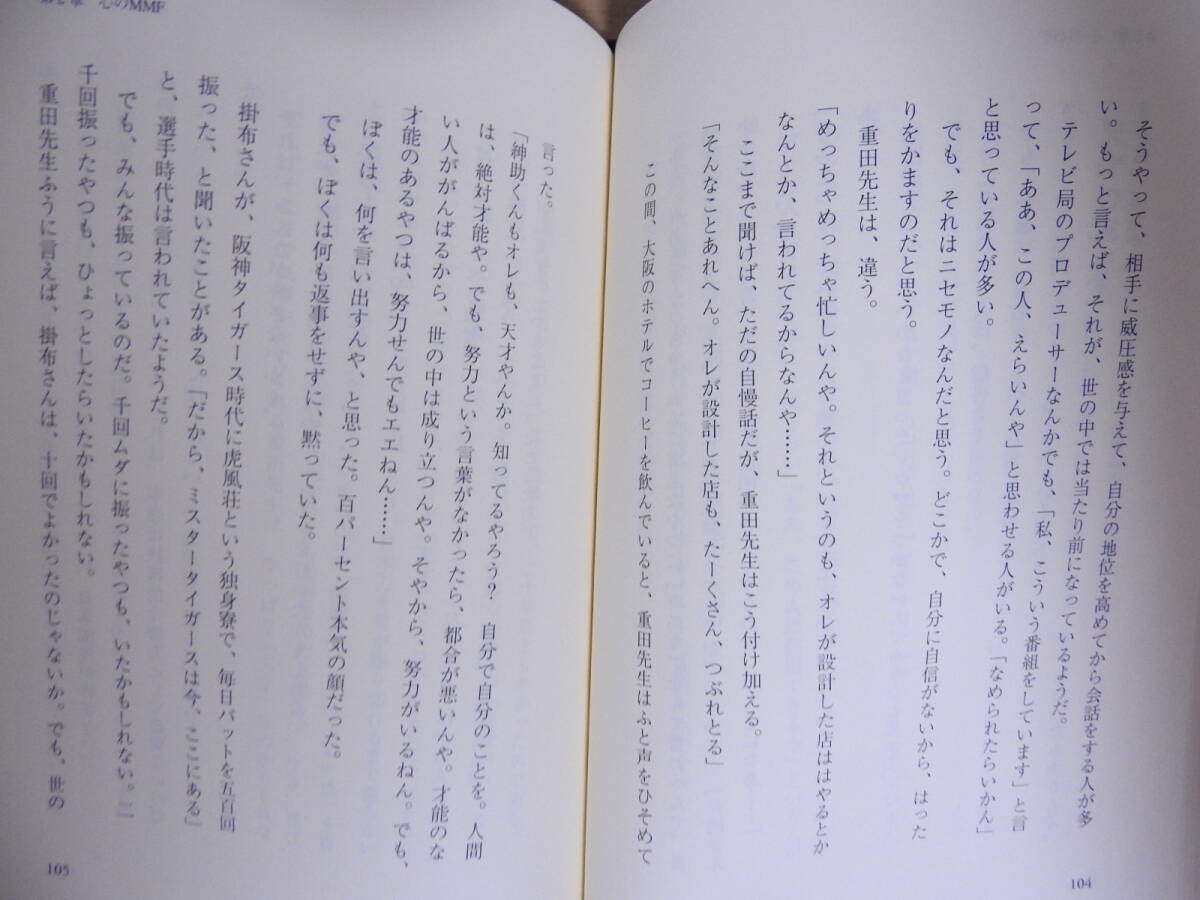 そうやって、相手に威圧感を与えて、自分の地位を高めてから会話をする人が多
い。もっと言えば、それが、世の中では当たり前になっているようだ。
テレビ局のプロデューサーなんかでも、「私、こういう番組をしています」と言
って、「ああ、この人、えらいんや」と思わせる人がいる。「なめられたらいかん」
と思っている人が多い。
でも、それはニセモノなんだと思う。どこかで、自分に自信がないから、はった
りをかますのだと思う。
重田先生は、違う。
「めっちゃめっちゃ忙しいんや。それというのも、オレが設計した店ははやるとか
なんとか、言われてるからなんや……」
ここまで聞けば、ただの自慢話だが、重田先生はこう付け加える。
「そんなことあれへん。オレが設計した店も、たーくさん、つぶれとる」
この間、大阪のホテルでコーヒーを飲んでいると、重田先生はふと声をひそめて
104
心のMMF
言った。
「紳助くんもオレも、天才やんか。知ってるやろう？　自分で自分のことを。人間
は、絶対才能や。でも、努力という言葉がなかったら、都合が悪いんや。才能のな
い人ががんばるから、世の中は成り立つんや。そやから、努力がいるねん。でも、
才能のあるやつは、努力せんでもエエねん……」
ぼくは、何を言い出すんや、と思った。百パーセント本気の顔だった。
でも、ぼくは何も返事をせずに、黙っていた。
掛布さんが、阪神タイガース時代に虎風荘という独身寮で、毎日バットを五百回
振った、と聞いたことがある。「だから、ミスタータイガースは今、ここにある」
と、選手時代は言われていたようだ。
でも、みんな振っているのだ。千回ムダに振ったやつも、いたかもしれない。二
千回振ったやつも、ひょっとしたらいたかもしれない。
重田先生ふうに言えば、掛布さんは、十回でよかったのじゃないか。でも、世の
105